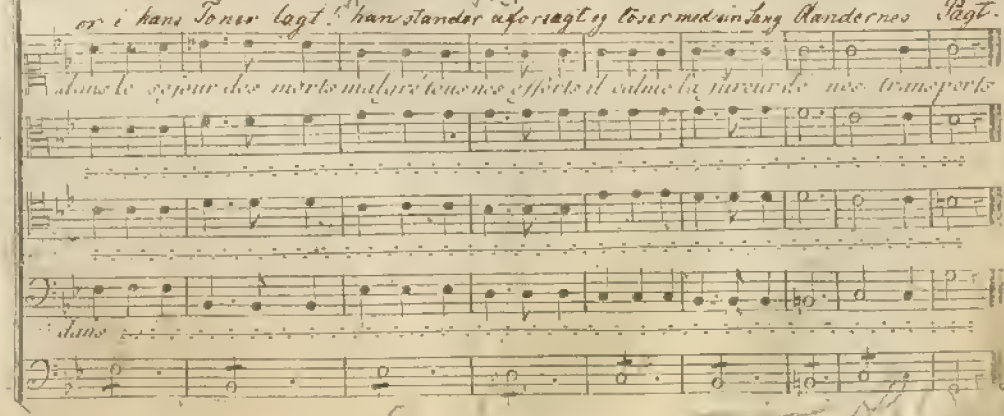 or i hans Toner lagt! han stander uforsagt og løser med sin Sang Aandernes Pagt.
dans le sejour des morts malgré tous nos efforts il calme la fureur de nos transports
dans